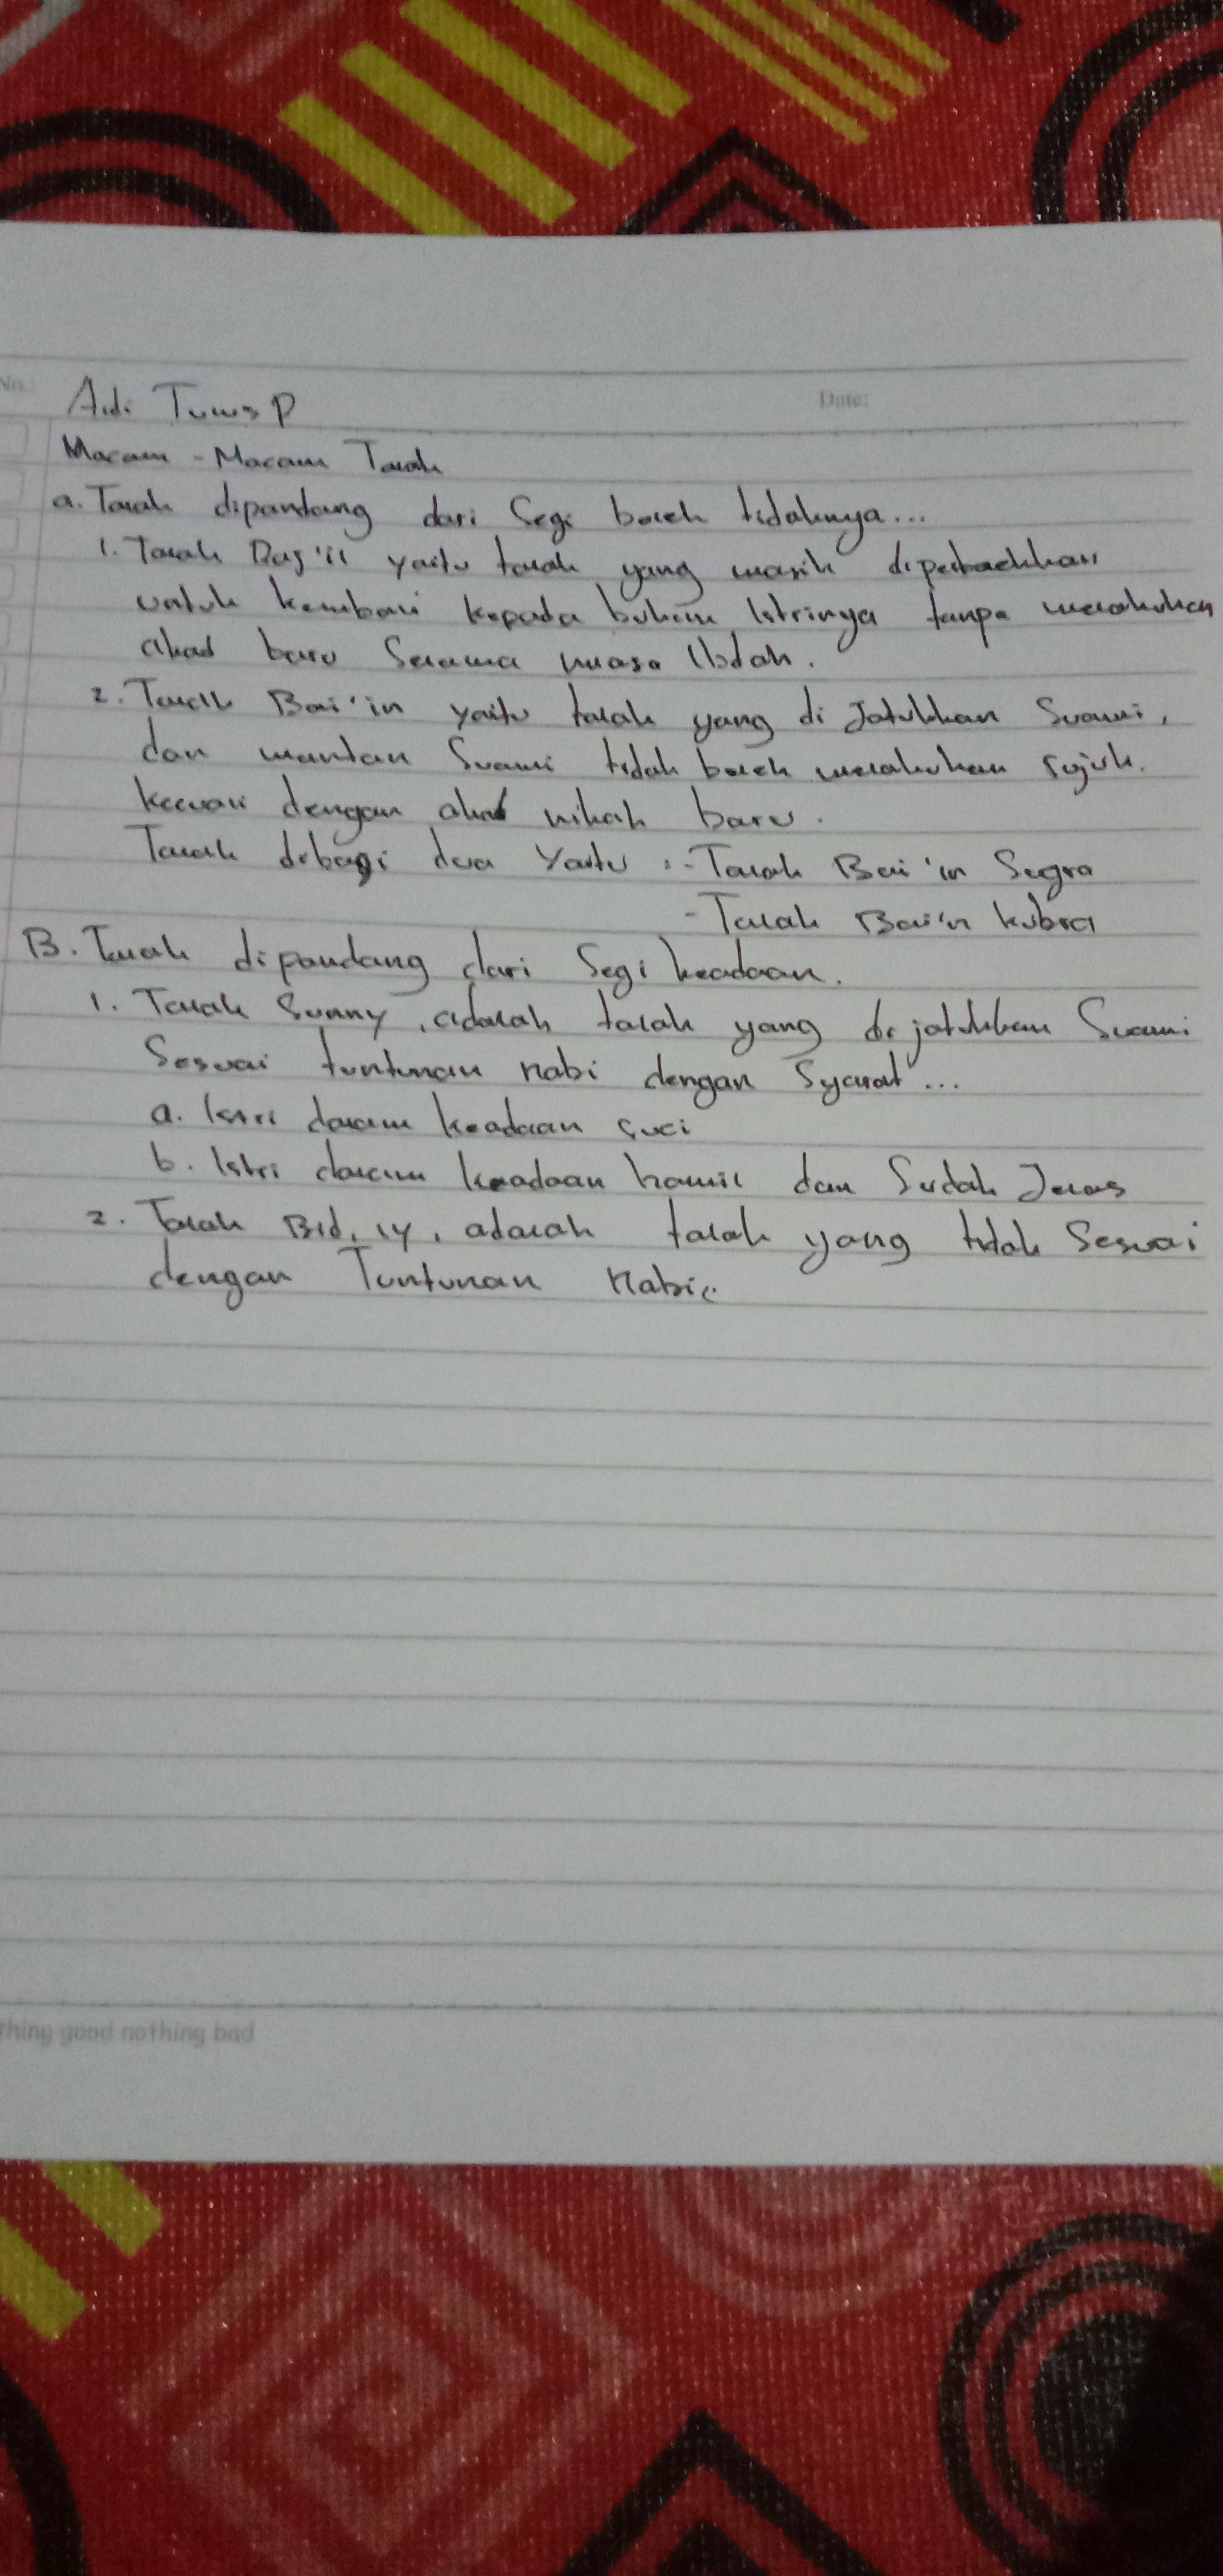 No.:
Date:
Adi P
Macam - Macam Talak
a. Talak dipandang dari Segi boleh tidaknya...
1. Talak Raj'il yaitu talak yang masih diperbolehkan
untuk kembali kepada bukan Istrinya tanpa melakukan
akad baru Selama masa Iddah.
2. Talak Bai'in yaitu talak yang di Jatuhkan Suami,
dan mantan Suami tidak boleh melakukan rujuk.
kecuali dengan akad nikah baru.
Talak dibagi dua Yaitu :- Talak Bai'in Sugra
- Talak Bai'n kubra
B. Talak dipandang dari Segi keadaan.
1. Talak Sunny, adalah talak yang di jatuhkan Suami
Sesuai tuntunan nabi dengan Syarat...
a. Istri dalam keadaan Suci
b. Istri dalam keadaan hamil dan Sudah Jelas
2. Talak Bid,iy, adalah talak yang tidak Sesuai
dengan Tuntunan Nabi
thing good nothing bad